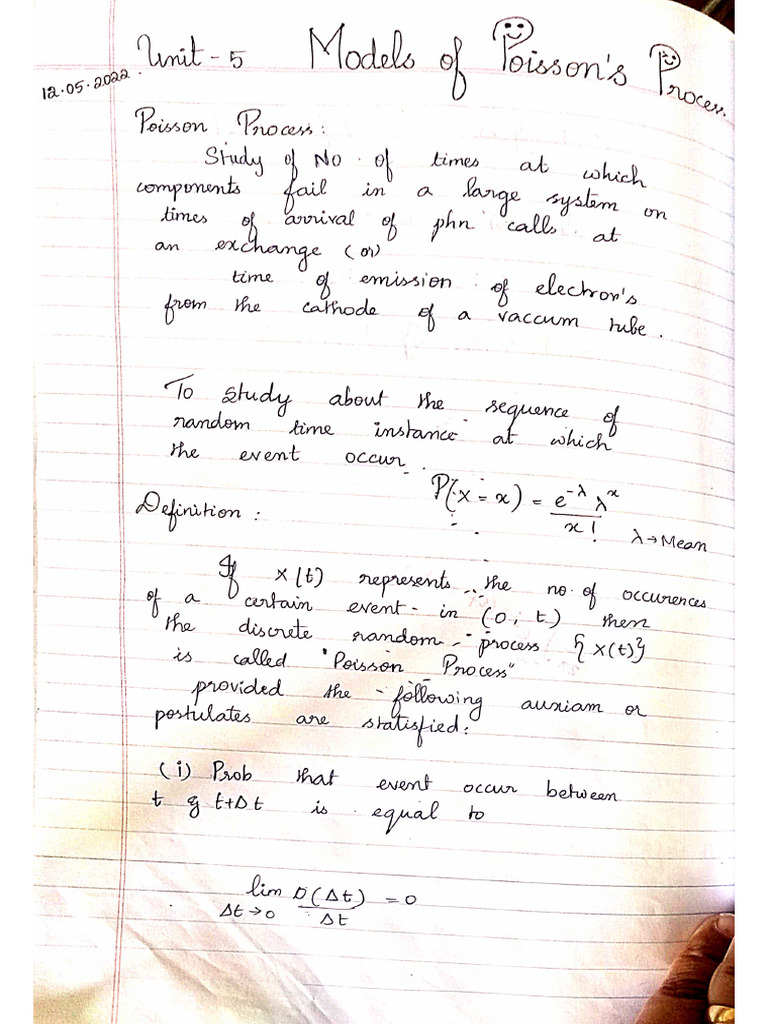 Unit - 5 Models of Poisson's Process.
12.05.2022.
Poisson Process:
Study of No. of times at which
components fail in a large system on
times of arrival of phn calls at
an exchange (or)
time of emission of electron's
from the cathode of a vaccum tube.
To study about the sequence of
random time instance at which
the event occur.
P(X = x) = e^{-λ} λ^x / x!
Definition :
λ → Mean
If X(t) represents the no. of occurences
of a certain event in (0, t) then
the discrete random process {X(t)}
is called "Poisson Process"
provided the following auxiam or
postulates are statisfied:
(i) Prob that event occur between
t & t+Δt is equal to
lim Δt→0 O(Δt) / Δt = 0